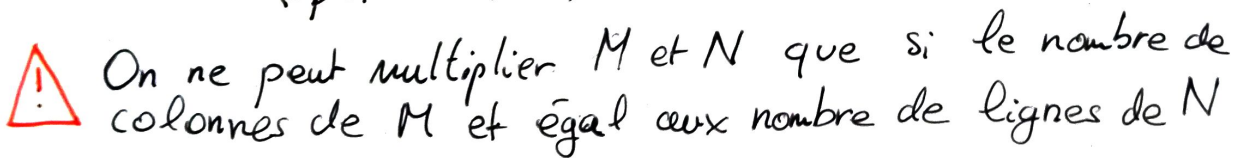 On ne peut multiplier M et N que si le nombre de
colonnes de M et égal aux nombre de lignes de N